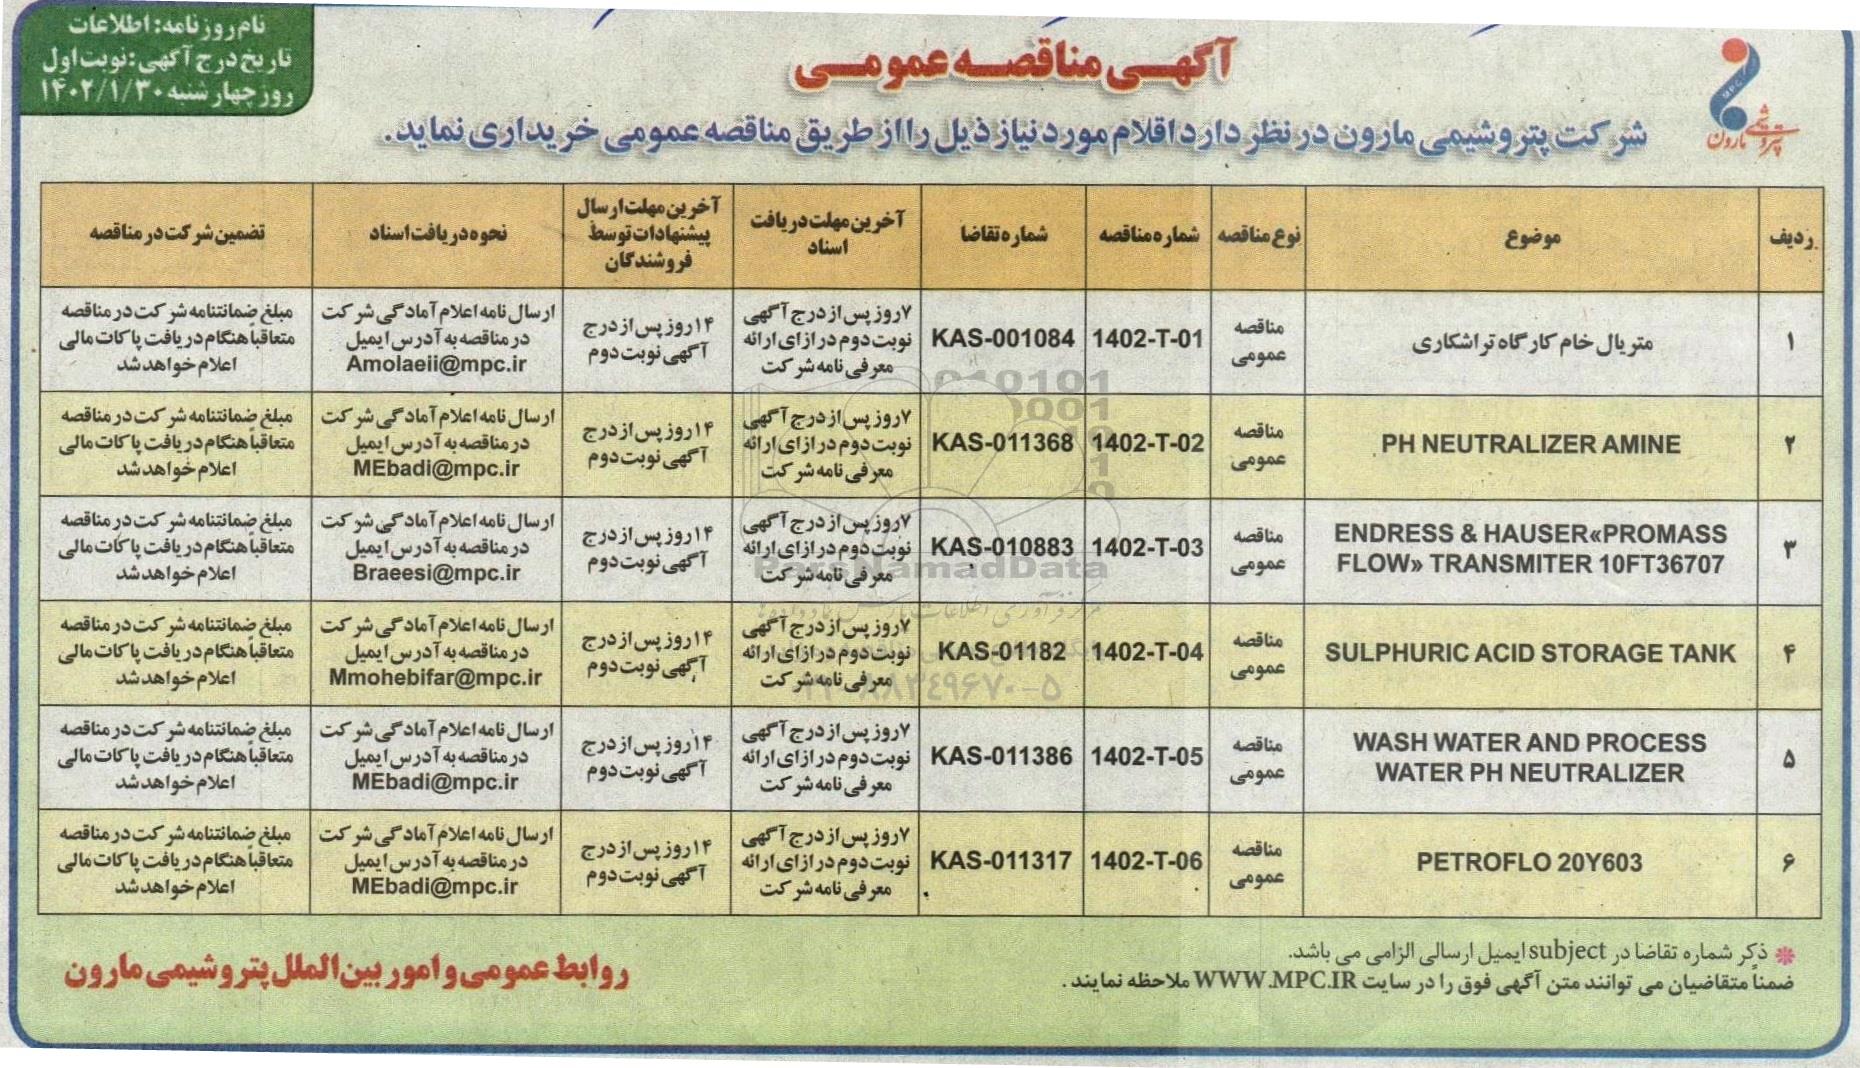 نام روزنامه: اطلاعات
تاریخ درج آگهی: نوبت اول
روز چهارشنبه ۱۴۰۲/۱/۳۰
آگهی مناقصه عمومی
MPC
پتروشیمی مارون
شرکت پتروشیمی مارون در نظر دارد اقلام مورد نیاز ذیل را از طریق مناقصه عمومی خریداری نماید.
ردیف | موضوع | نوع مناقصه | شماره مناقصه | شماره تقاضا | آخرین مهلت دریافت اسناد | آخرین مهلت ارسال پیشنهادات توسط فروشندگان | نحوه دریافت اسناد | تضمین شرکت در مناقصه
۱ | متریال خام کارگاه تراشکاری | مناقصه عمومی | 1402-T-01 | KAS-001084 | ۷روز پس از درج آگهی نوبت دوم در ازای ارائه معرفی نامه شرکت | ۱۴روز پس از درج آگهی نوبت دوم | ارسال نامه اعلام آمادگی شرکت در مناقصه به آدرس ایمیل Amolaeii@mpc.ir | مبلغ ضمانتنامه شرکت در مناقصه متعاقباً هنگام دریافت پاکات مالی اعلام خواهد شد
۲ | PH NEUTRALIZER AMINE | مناقصه عمومی | 1402-T-02 | KAS-011368 | ۷روز پس از درج آگهی نوبت دوم در ازای ارائه معرفی نامه شرکت | ۱۴روز پس از درج آگهی نوبت دوم | ارسال نامه اعلام آمادگی شرکت در مناقصه به آدرس ایمیل MEbadi@mpc.ir | مبلغ ضمانتنامه شرکت در مناقصه متعاقباً هنگام دریافت پاکات مالی اعلام خواهد شد
۳ | ENDRESS & HAUSER«PROMASS FLOW» TRANSMITER 10FT36707 | مناقصه عمومی | 1402-T-03 | KAS-010883 | ۷روز پس از درج آگهی نوبت دوم در ازای ارائه معرفی نامه شرکت | ۱۴روز پس از درج آگهی نوبت دوم | ارسال نامه اعلام آمادگی شرکت در مناقصه به آدرس ایمیل Braeesi@mpc.ir | مبلغ ضمانتنامه شرکت در مناقصه متعاقباً هنگام دریافت پاکات مالی اعلام خواهد شد
۴ | SULPHURIC ACID STORAGE TANK | مناقصه عمومی | 1402-T-04 | KAS-01182 | ۷روز پس از درج آگهی نوبت دوم در ازای ارائه معرفی نامه شرکت | ۱۴روز پس از درج آگهی نوبت دوم | ارسال نامه اعلام آمادگی شرکت در مناقصه به آدرس ایمیل Mmohebifar@mpc.ir | مبلغ ضمانتنامه شرکت در مناقصه متعاقباً هنگام دریافت پاکات مالی اعلام خواهد شد
۵ | WASH WATER AND PROCESS WATER PH NEUTRALIZER | مناقصه عمومی | 1402-T-05 | KAS-011386 | ۷روز پس از درج آگهی نوبت دوم در ازای ارائه معرفی نامه شرکت | ۱۴روز پس از درج آگهی نوبت دوم | ارسال نامه اعلام آمادگی شرکت در مناقصه به آدرس ایمیل MEbadi@mpc.ir | مبلغ ضمانتنامه شرکت در مناقصه متعاقباً هنگام دریافت پاکات مالی اعلام خواهد شد
۶ | PETROFLO 20Y603 | مناقصه عمومی | 1402-T-06 | KAS-011317 | ۷روز پس از درج آگهی نوبت دوم در ازای ارائه معرفی نامه شرکت | ۱۴روز پس از درج آگهی نوبت دوم | ارسال نامه اعلام آمادگی شرکت در مناقصه به آدرس ایمیل MEbadi@mpc.ir | مبلغ ضمانتنامه شرکت در مناقصه متعاقباً هنگام دریافت پاکات مالی اعلام خواهد شد
ParsNamadData
ذکر شماره تقاضا در subject ایمیل ارسالی الزامی می باشد.
ضمناً متقاضیان می توانند متن آگهی فوق را در سایت WWW.MPC.IR ملاحظه نمایند.
روابط عمومی و امور بین الملل پتروشیمی مارون